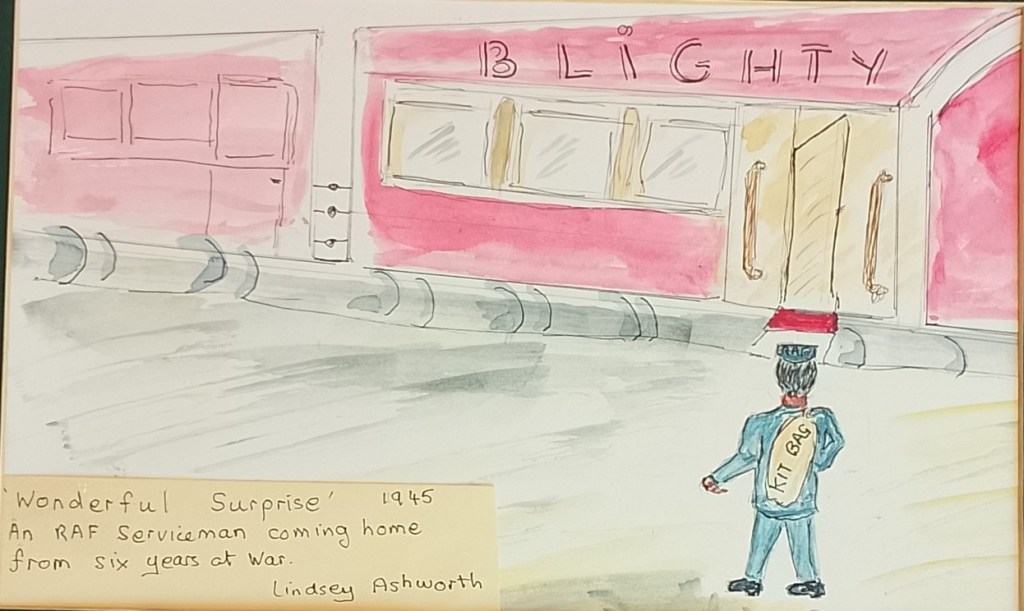 BLIGHTY
RAF
KIT BAG
'Wonderful Surprise' 1945
An RAF Serviceman coming home
from six years at War.
Lindsey Ashworth